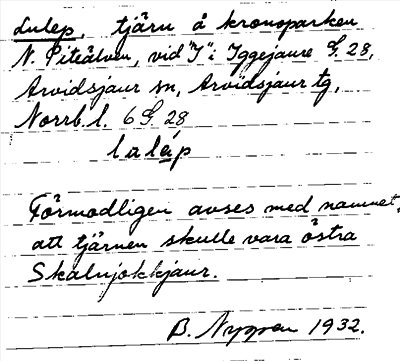 Lulep, tjärn å kronoparken
N. Piteälven, vid "J" i Iggejaure G. 28,
Arvidsjaur sn, Arvidsjaur tg,
Norrb. l. 6 G. 28
lulép
Förmodligen avses med namnet,
att tjärnen skulle vara östra
Skalnjokkjaur.
B. Nygren 1932.